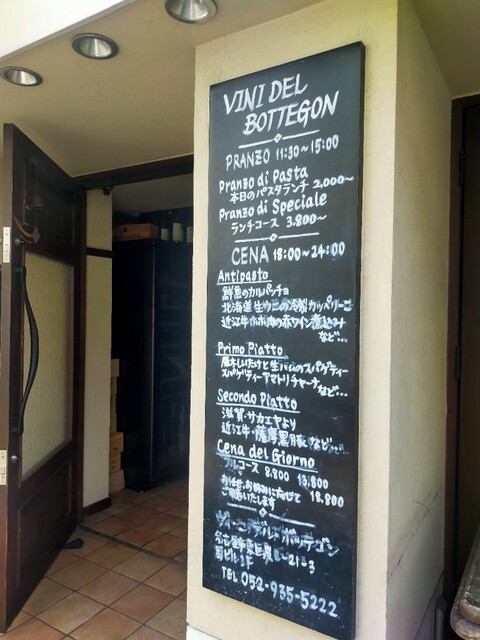 VINI DEL
BOTTEGON
PRANZO 11:30~15:00
Pranzo di Pasta
本日のパスタランチ 2,000~
Pranzo di Speciale
ランチコース 3.800~
CENA 18:00~24:00
Antipasto
鮮魚のカルパッチョ
北海道生ウニの冷製カッペリーニ
近江牛ホホ肉の赤ワイン煮込み
など…
Primo Piatto
原木しいたけと生ハムのスパゲティー
スパゲティーアマトリチャーナなど…
Secondo Piatto
滋賀・サカエヤより
近江牛・薩摩黒豚など…
Cena del Giorno
フルコース 8.800 13,800
お任せ、お好みに応じて 18,800
ご用意いたします
ヴィーニデルボッテゴン
名古屋市東区泉
ビル1F
TEL 052-935-5222